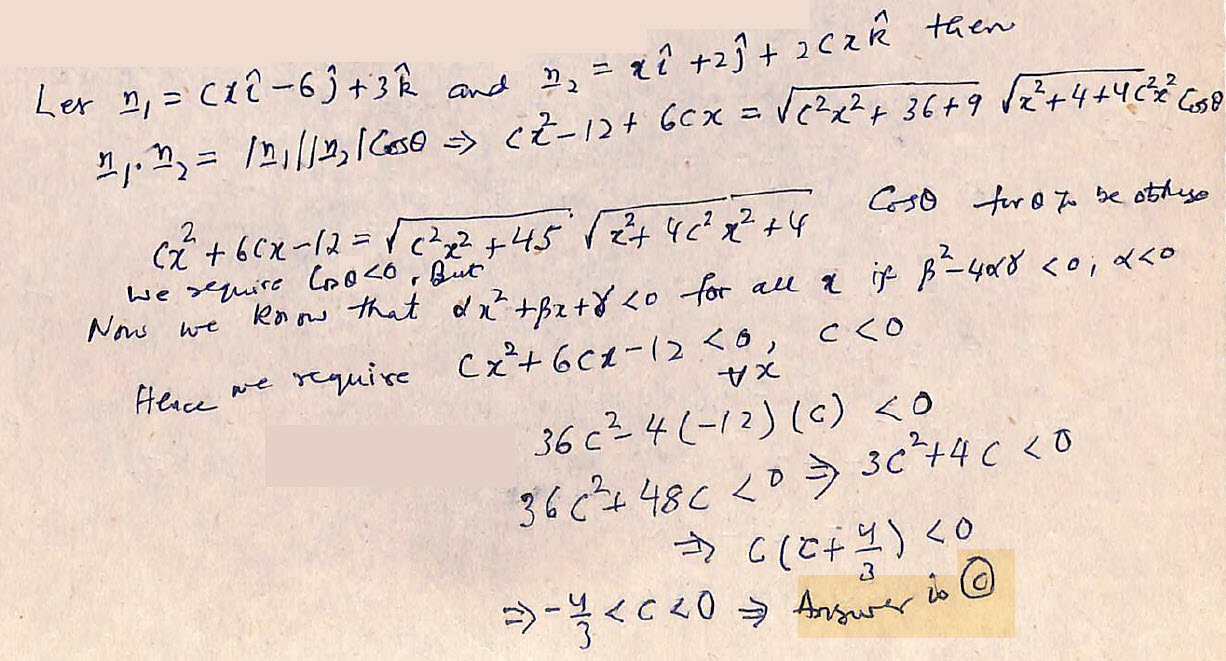 Let n₁ = cxî - 6ĵ + 3k̂ and n₂ = xî + 2ĵ + 2cxk̂ then
n₁.n₂ = |n₁||n₂|Cosθ ⇒ cx² - 12 + 6cx = √(c²x² + 36 + 9) √(x² + 4 + 4c²x²) Cosθ
cx² + 6cx - 12 = √(c²x² + 45) √(x² + 4c²x² + 4) Cosθ for θ to be obtuse
we require Cosθ<0, But
Now we know that αx² + βx + γ < 0 for all x if β² - 4αγ < 0, α<0
Hence we require cx² + 6cx - 12 < 0, c < 0
∀x
36c² - 4(-12)(c) < 0
36c² + 48c < 0 ⇒ 3c² + 4c < 0
⇒ c(c + 4/3) < 0
⇒ -4/3 < c < 0 ⇒ Answer is ⓒ